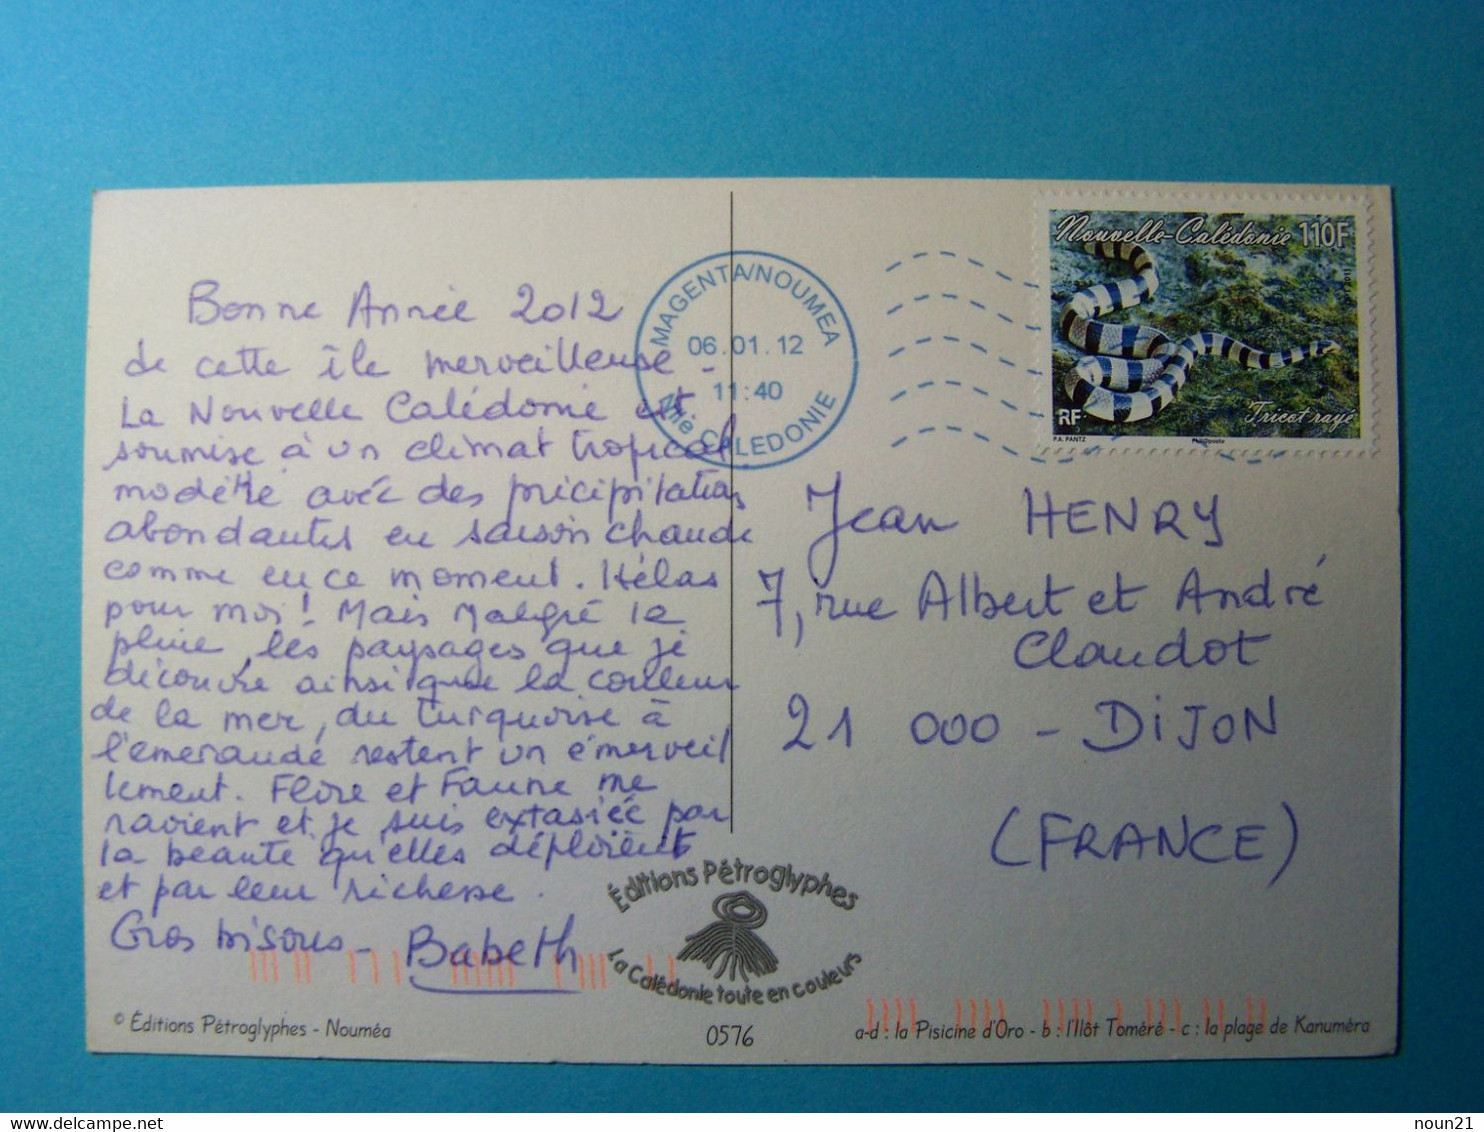 Bonne Année 2012
de cette île merveilleuse -
La Nouvelle Calédonie est
soumise à un climat tropical
modéré avec des précipitations
abondantes en saison chaude
comme en ce moment. Hélas
pour moi ! Mais Malgré la
pluie, les paysages que je
découvre ainsi que la couleur
de la mer, du turquoise à
l'émeraude restent un émerveil
lement. Flore et Faune me
ravient et je suis extasiée par
la beauté qu'elles déploient
et par leur richesse.
Gros bisous - Babeth
MAGENTA/NOUMEA
06.01.12
11:40
Nlle. CALEDONIE
Nouvelle-Calédonie 110F
2011
RF
Tricot rayé
P.A. PANTZ
Philaposte
Jean HENRY
7, rue Albert et André
Claudot
21 000 - DIJON
(FRANCE)
Éditions Pétroglyphes
La Calédonie toute en couleurs
© Éditions Pétroglyphes - Nouméa
0576
a-d : la Pisicine d'Oro - b : l'Ilôt Toméré - c : la plage de Kanuméra
noun21